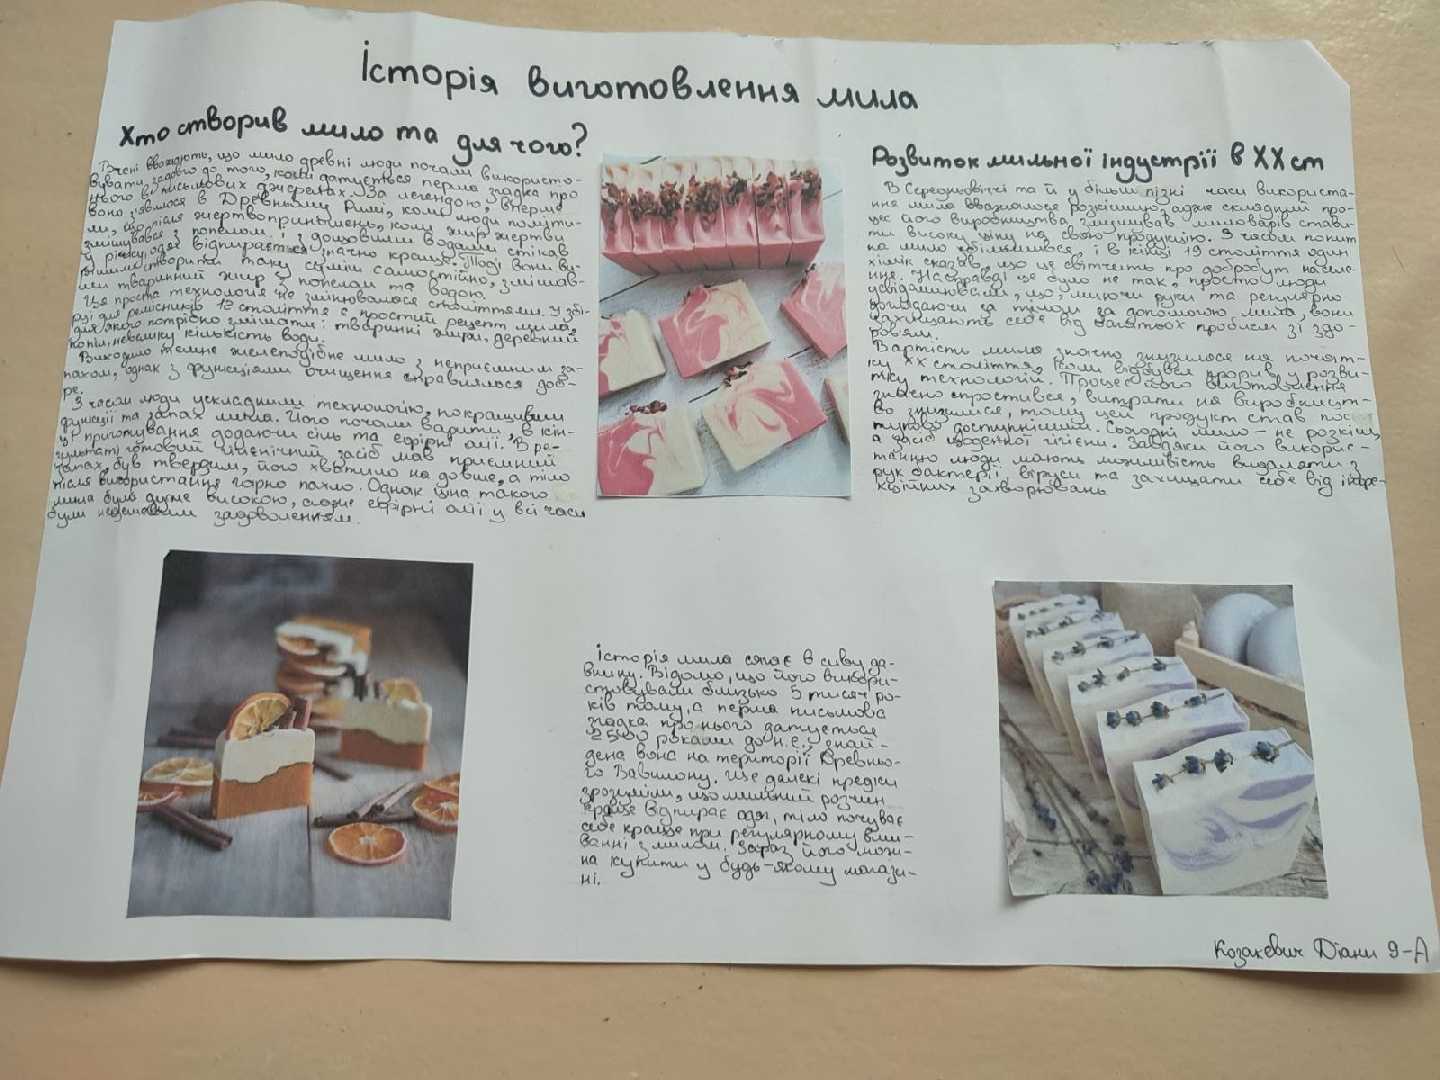 Історія виготовлення мила
Хто створив мило та для чого?
Вчені вважають, що мило древні люди почали використо-
вувати задовго до того, коли датується перша згадка про
нього в письмових джерелах. За легендою, вперше
воно з'явилося в Древньому Римі, коли люди поміти-
ли, що після жертвоприношень, коли жир жертви
змішувався з попелом і з дощовими водами стікав
у річку, одяг відпирається значно краще. Тоді вони ви-
рішили створити таку суміш самостійно, змішав-
ши тваринний жир з попелом та водою.
Ця проста технологія не змінювалася століттями. У
для ремісників 12 століття є простий рецепт мила,
для якого потрібно змішати: тваринні жири, деревний
попіл, невелику кількість води.
Виходило темне желеподібне мило з неприємним за-
пахом, однак з функціями очищення справлялося доб-
ре.
З часом люди ускладнили технологію, покращивши
функції та запах мила. Його почали варити, в кін-
ці приготування додаючи сіль та ефірні олії. В ре-
зультаті готовий гігієнічний засіб мав приємний
запах, був твердим, його хватило на довше, а тіло
після використання гарно пахло. Однак ціна такого
мила була дуже високою, адже ефірні олії у всі часи
були недешевим задоволенням.
Розвиток мильної індустрії в XX ст
В Середньовіччі та й у більш пізні часи використа-
ння мила вважалося розкішшю, адже складний про-
цес його виробництва змушував миловарів стави-
ти високу ціну на свою продукцію. З часом попит
на мило збільшився, і в кінці 19 століття один
хімік сказав, що це свідчить про добробут населе-
ння. Насправді це було не так, просто люди
усвідомлювали, що, миючи руки та регулярно
доглядаючи за тілом за допомогою мила, вони
захищають себе від багатьох проблем зі здо-
ров'ям.
Вартість мила значно знизилося на почат-
ку XX століття, коли відбувся прорив у розви-
тку технологій. Процес його виготовлення
значно спростився, витрати на виробницт-
во знизилися, тому цей продукт став
доступнішим. Сьогодні мило – не розкіш,
а засіб щоденної гігієни. Завдяки його викорис-
танню люди мають можливість видаляти з
рук бактерії, віруси та захищати себе від інфе-
кційних захворювань
Історія мила сягає в сиву да-
внину. Відомо, що його викори-
стовували близько 5 тисяч ро-
ків тому, а перша письмова
згадка про нього датується
2500 роками до н.е., знай-
дена вона на території Древньо-
го Вавилону. Ще далекі предки
зрозуміли, що мильний розчин
краще відпирає одяг, тіло почуває
себе краще при регулярному вми-
ванні з милом. Зараз його мож-
на купити у будь-якому магази-
ні.
Козакевич Діани 9-А